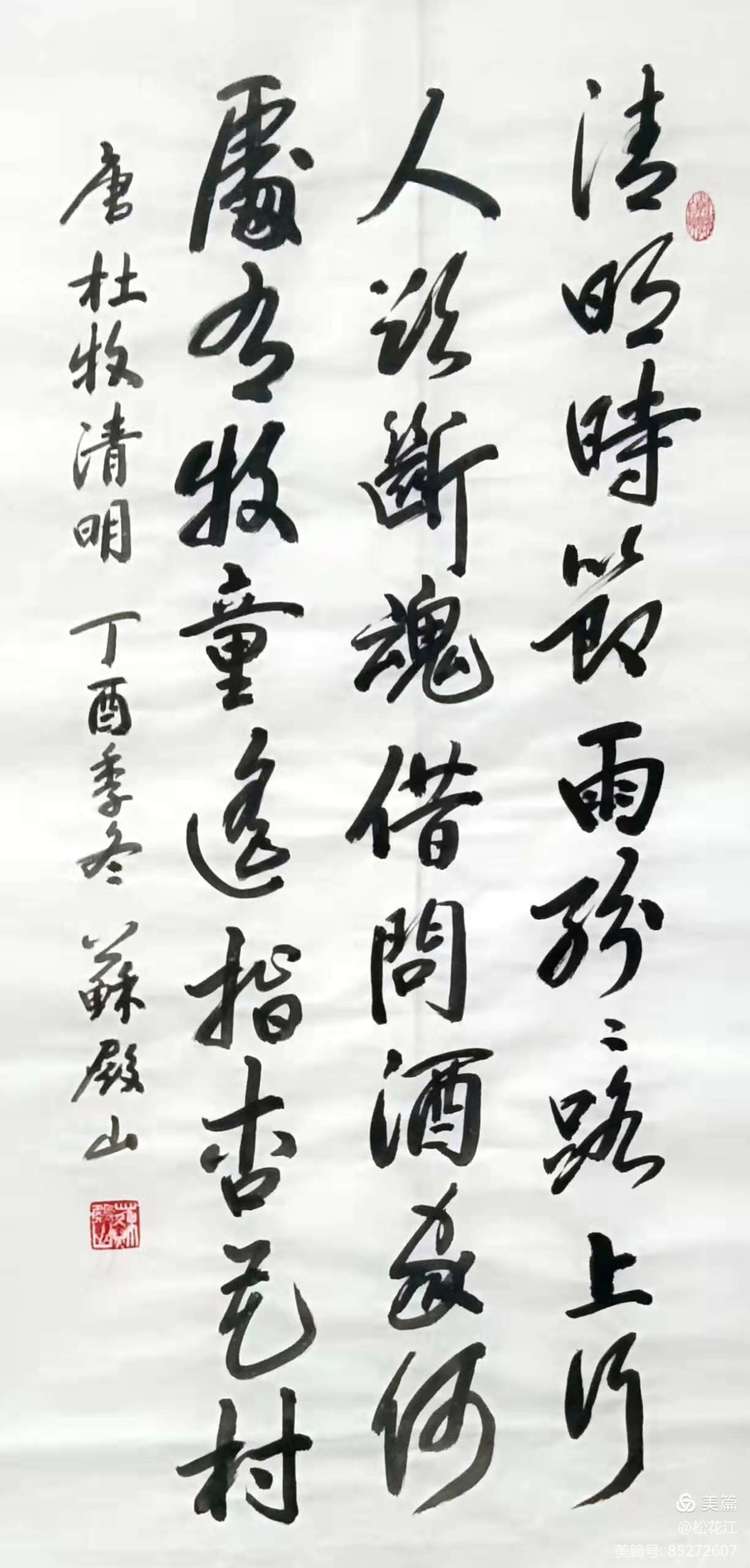 清明時節雨紛々路上行
人欲斷魂借問酒家何
處有牧童遙指杏花村
唐杜牧清明 丁酉季冬 蘇殿山
美篇
@松花江
美篇号:85272607